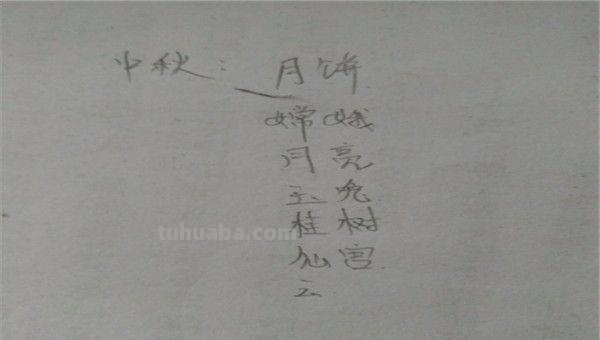 中秋: 月饼
嫦娥
月亮
玉兔
桂树
仙宫
云
tuhuaba.com